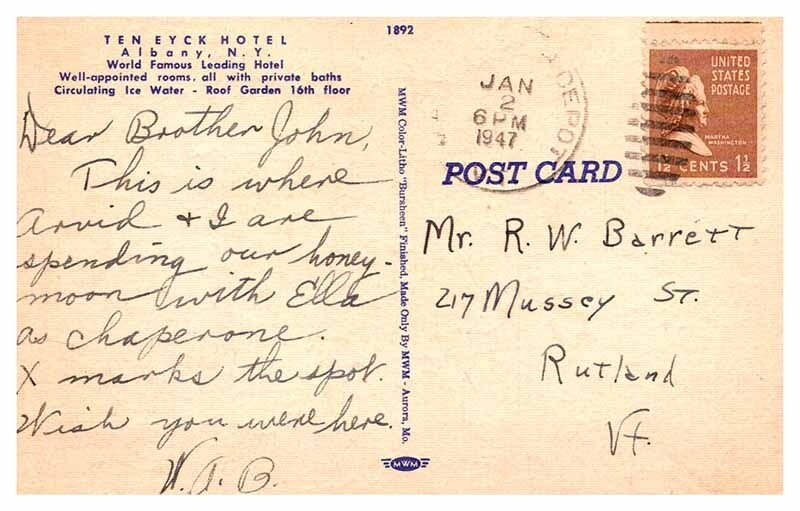 TEN EYCK HOTEL
Albany, N. Y.
World Famous Leading Hotel
Well-appointed rooms, all with private baths
Circulating Ice Water - Roof Garden 16th floor
Dear Brother John,
This is where
Arvid & I are
spending our honey-
moon with Ella
as chaperone.
X marks the spot.
Wish you were here.
W.A.B.
1892
MWM Color-Litho "Buraheen" Finished, Made Only By MWM - Aurora, Mo.
MWM
DEPOT
JAN
2
6 PM
1947
UNITED
STATES
POSTAGE
MARTHA
WASHINGTON
1½ CENTS 1½
POST CARD
Mr. R. W. Barrett
217 Mussey St.
Rutland
Vt.